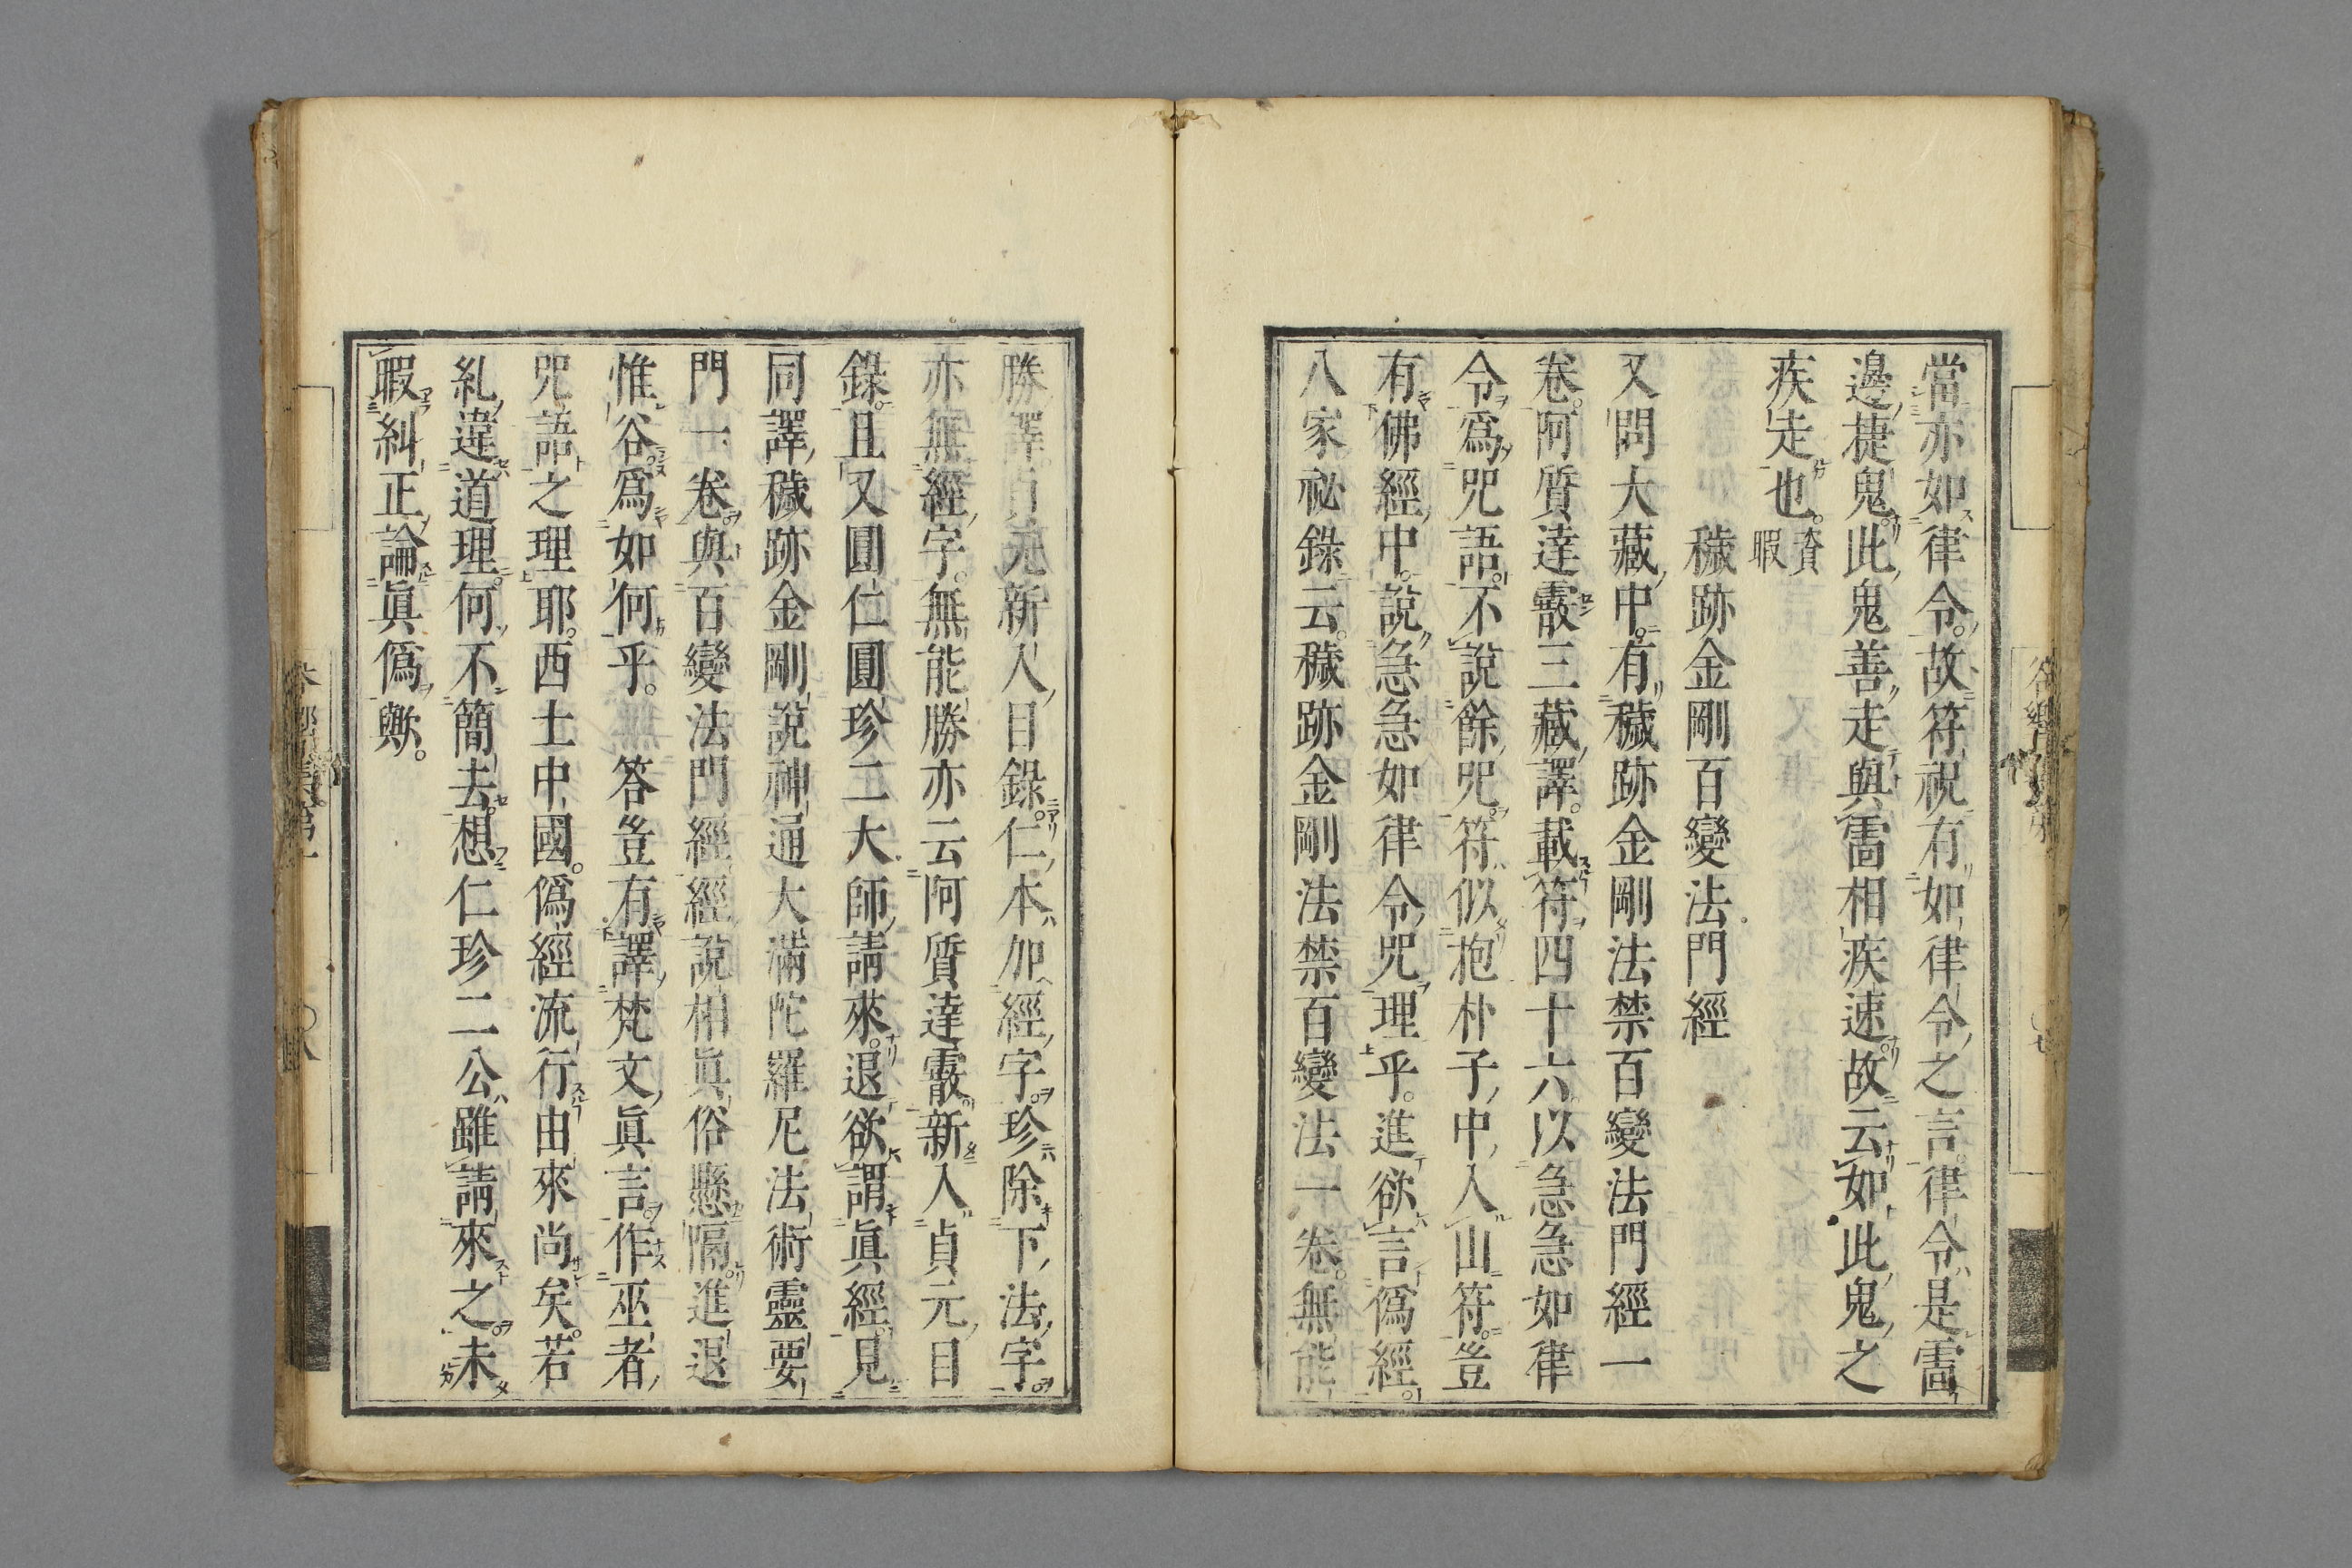 當亦如律令。故符祝有如律令之言。律令是雷
邊捷鬼。此鬼善走與雷相疾速。故云如此鬼之
疾走也。資暇
穢跡金剛百變法門經
又問大藏中。有穢跡金剛法禁百變法門經一
卷。阿質達霰三藏譯。載符四十六以急急如律
令爲咒語。不說餘咒。符似抱朴子中入山符。豈
有佛經中。說急急如律令咒理乎。進欲言僞經。
八家祕錄云。穢跡金剛法禁百變法一卷。無能
勝譯貞元新入目錄。仁本加經字。珍除下法字。
亦無經字。無能勝亦云阿質達霰新入貞元目
錄。且又圓仁圓珍二大師請來。退欲謂眞經見
同譯穢跡金剛說神通大滿陀羅尼法術靈要
門一卷。與百變法門經經說相眞俗懸隔。進退
惟谷。爲如何乎。答豈有譯梵文眞言。作巫者
咒語之理耶。西土中國。僞經流行由來尚矣。若
糺違道理。何不簡去。想仁珍二公雖請來之。未
暇糾正論眞僞歟。